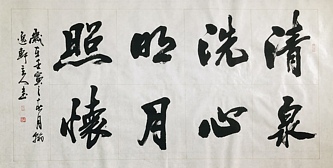 清泉
洗心
明月
照懷
歲在壬寅之十四月
逸軒主人書